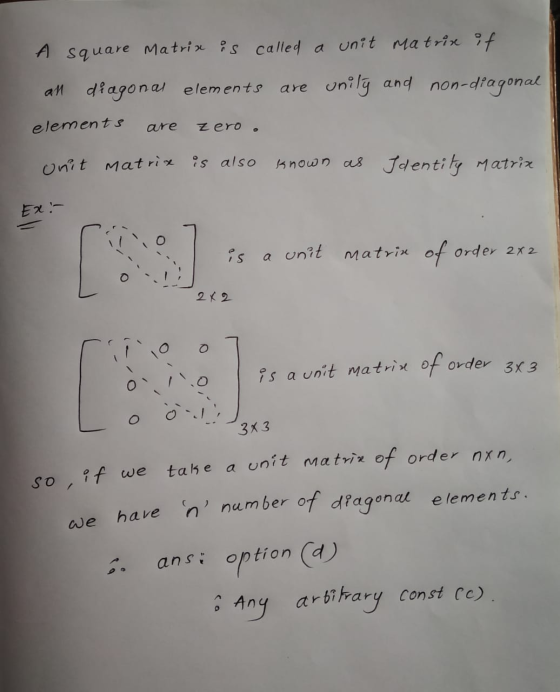 A square Matrix is called a unit Matrix if
all diagonal elements are unity and non-diagonal
elements are zero.
Unit Matrix is also known as Identity Matrix
Ex:-
[ 1 0
0 1 ] 2x2 is a unit Matrix of order 2x2
[ 1 0 0
0 1 0
0 0 1 ] 3x3 is a unit matrix of order 3x3
so, if we take a unit matrix of order nxn,
we have 'n' number of diagonal elements.
∴ ans: option (d)
: Any arbitrary const (c).